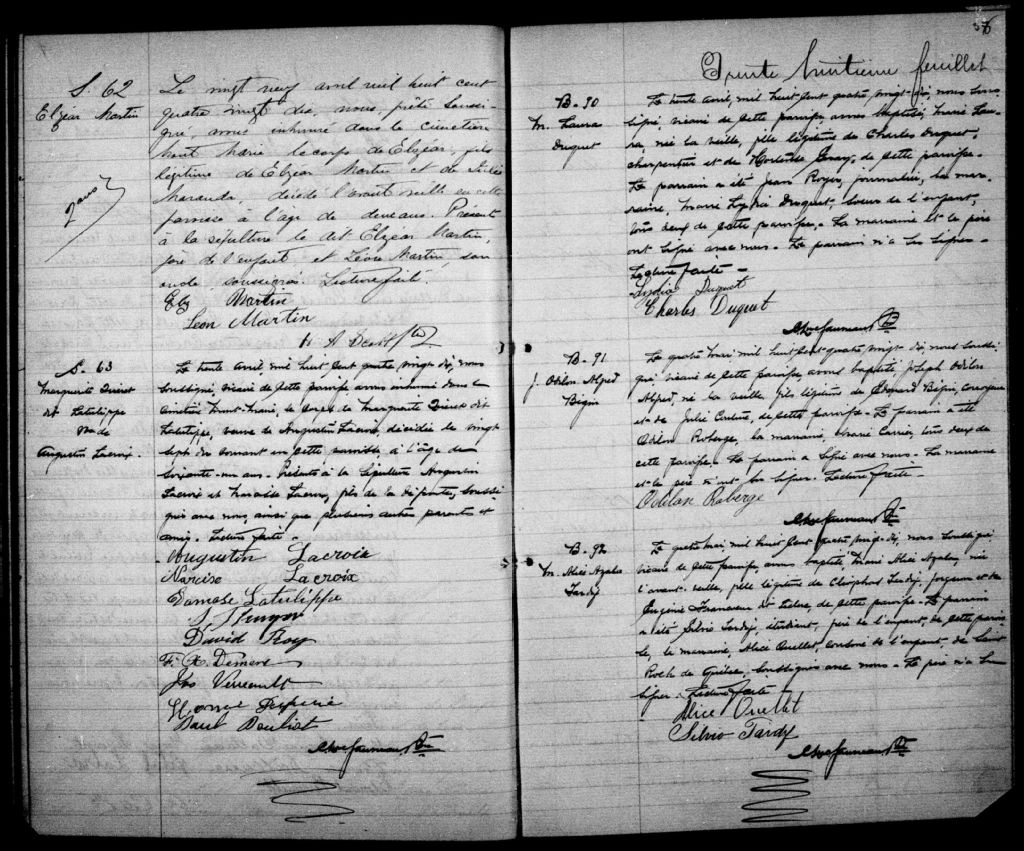 S. 62
Elzéar Martin
2 ans
Le vingt neuf avril mil huit cent
quatre vingt dix, nous, prêtre soussi-
gné, avons inhumé dans le cimetière
Mont Marie le corps de Elzéar, fils
légitime de Elzéar Martin et de Julie
Maranda, décédé l'avant veille en cette
paroisse à l'âge de deux ans. Présents
à la sépulture le dit Elzéar Martin,
père de l'enfant et Léon Martin, son
oncle soussignés. Lecture faite.
Elz Martin
Leon Martin
S. 63
Marguerite
dit Latulippe
Vve de
Augustin Lacroix
Le trente avril mil huit cent quatre vingt dix, nous
soussigné, vicaire de cette paroisse avons inhumé dans le
cimetière Mont-Marie, le corps de Marguerite dit
Latulippe, veuve de Augustin Lacroix, décédée le vingt
sept du courant en cette paroisse, à l'âge de
soixante-un ans. Présents à la sépulture Augustin
Lacroix et Narcisse Lacroix, fils de la défunte, soussi-
gnés avec nous, ainsi que plusieurs autres parents et
amis. Lecture faite.
Augustin Lacroix
Narcise Lacroix
Damase Latulippe
David Roy
F. X. Demers
Jos Verreault
Paul Bouliat
Trente huitieme feuillet
B-90
M. Laura
Duquet
Le trente avril, mil huit cent quatre vingt-dix, nous sous-
signé, vicaire de cette paroisse, avons baptisé, Marie Lau-
ra, née la veille, fille légitime de Charles Duquet,
charpentier et de Hortense de cette paroisse.
Le parrain a été Jean Royer, journalier, la mar-
raine, Marie Lydia Duquet, soeur de l'enfant,
tous deux de cette paroisse. La marraine et le père
ont signé avec nous. Le parrain n'a su signer.
Lecture faite
Lydia Duquet
Charles Duquet
B-91
J. Odilon Alfred
Bégin
Le quatre mai mil huit cent quatre vingt dix, nous soussi-
gné vicaire de cette paroisse, avons baptisé Joseph Odilon
Alfred, né la veille, fils légitime de Édouard Bégin,
et de Julie Couture, de cette paroisse. Le parrain a été
Odilon Roberge, la marraine, Marie Carrier, tous deux de
cette paroisse. Le parrain a signé avec nous. La marraine
et le père n'ont su signer. Lecture faite.
Odilon Roberge
B-92
M. Alice Azalée
Tardif
Le quatre mai, mil huit cent quatre vingt-dix, nous soussigné
vicaire de cette paroisse avons baptisé, Marie Alice Azalée, née
l'avant-veille, fille légitime de Cléophas Tardif, forgeron et de
Eugénie de cette paroisse. Le parrain
a été Silvio Tardif, étudiant, de l'enfant, de cette parois-
se, la marraine, Alice Ouellet, cousine de l'enfant, de Saint
Roch de Québec, soussignés avec nous. Le père n'a su
signer. Lecture faite
Alice Ouellet
Silvio Tardif